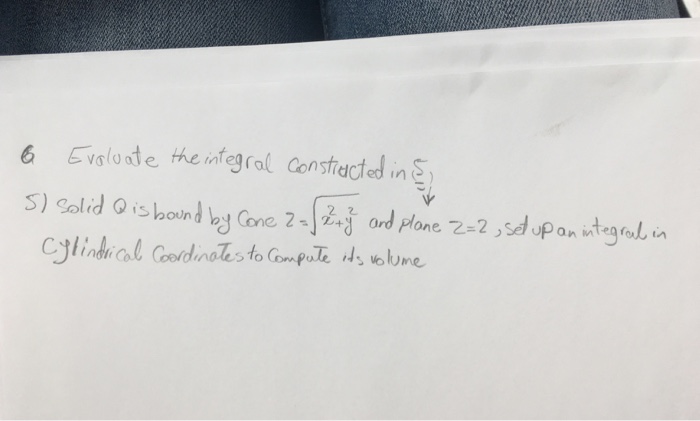 6 Evaluate the integral constructed in 5)
5) Solid Q is bound by Cone z=√x²+y² and plane z=2, set up an integral in
Cylindrical Coordinates to Compute its volume